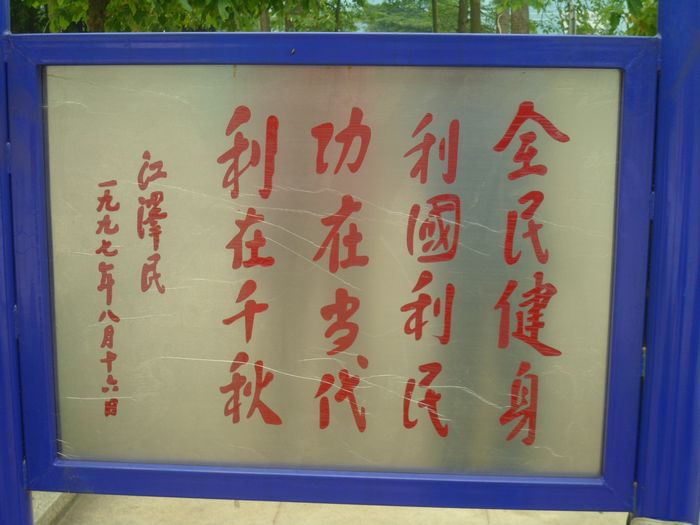 全民健身
利國利民
功在当代
利在千秋
江澤民
一九九七年八月十六日